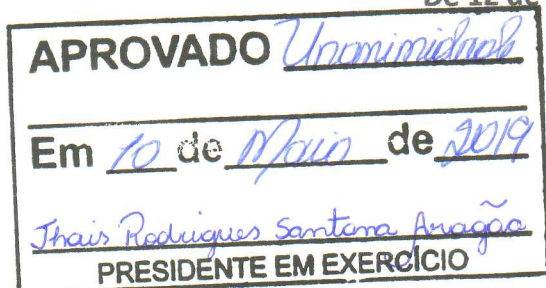 De 12 de
APROVADO Unanimidade
Em 10 de Maio de 2019
Thais Rodrigues Santana Aragão
PRESIDENTE EM EXERCÍCIO